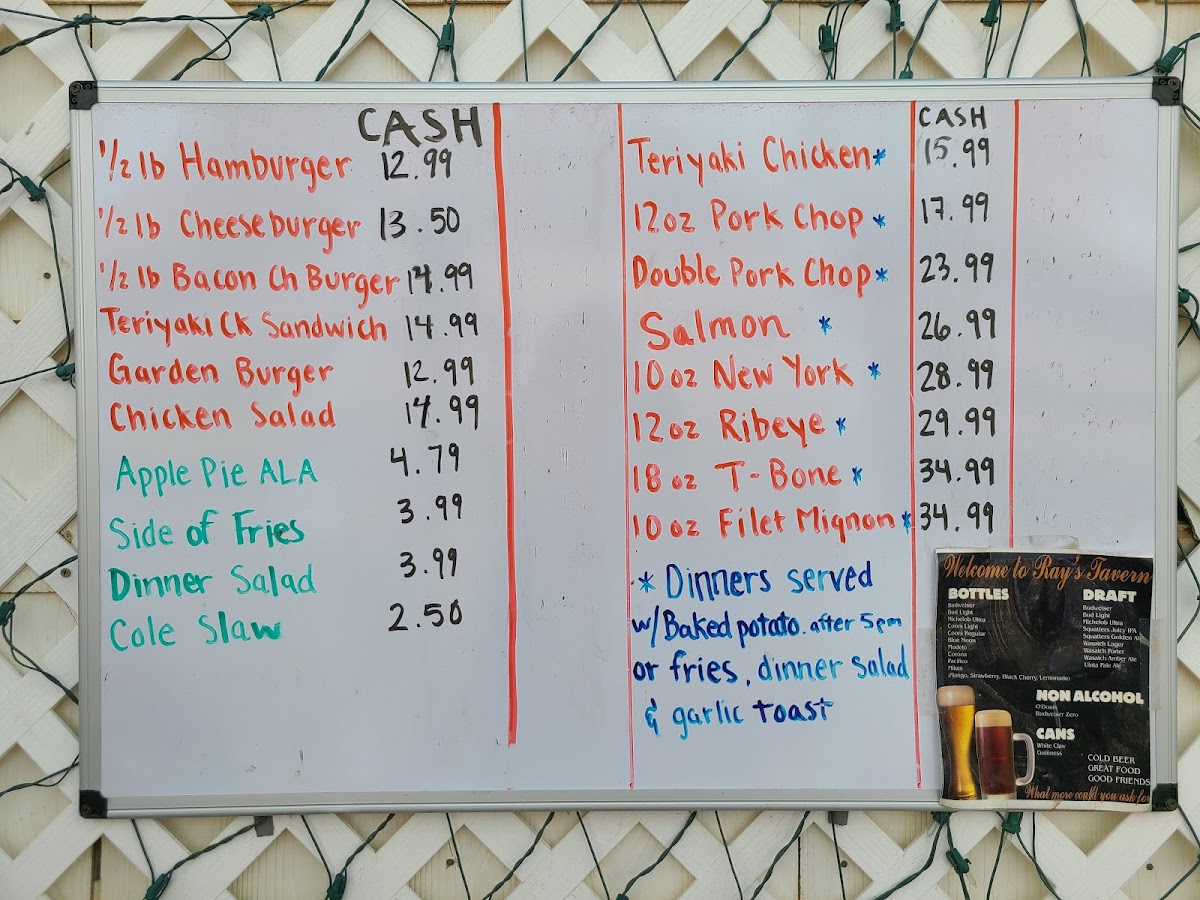 CASH
1/2 lb Hamburger 12.99
1/2 lb Cheeseburger 13.50
1/2 lb Bacon Ch Burger 14.99
Teriyaki Ck Sandwich 14.99
Garden Burger 12.99
Chicken Salad 14.99
Apple Pie ALA 4.79
Side of Fries 3.99
Dinner Salad 3.99
Cole Slaw 2.50
CASH
Teriyaki Chicken* 15.99
12oz Pork Chop * 17.99
Double Pork Chop* 23.99
Salmon * 26.99
10 oz New York * 28.99
12oz Ribeye * 29.99
18 oz T-Bone * 34.99
10 oz Filet Mignon * 34.99
* Dinners served
w/Baked potato. after 5pm
or fries, dinner salad
& garlic toast
Welcome to Ray's Tavern
BOTTLES
Budweiser
Bud Light
Michelob Ultra
Coors Light
Coors Regular
Blue Moon
Modelo
Corona
Pacifico
Mikes
(Mango, Strawberry, Black Cherry, Lemonade)
DRAFT
Budweiser
Bud Light
Michelob Ultra
Squatters Juicy IPA
Squatters Golden Ale
Wasatch Lager
Wasatch Porter
Wasatch Amber Ale
Uinta Pale Ale
NON ALCOHOL
O'Douls
Budweiser Zero
CANS
White Claw
Guinness
COLD BEER
GREAT FOOD
GOOD FRIENDS
What more could you ask for